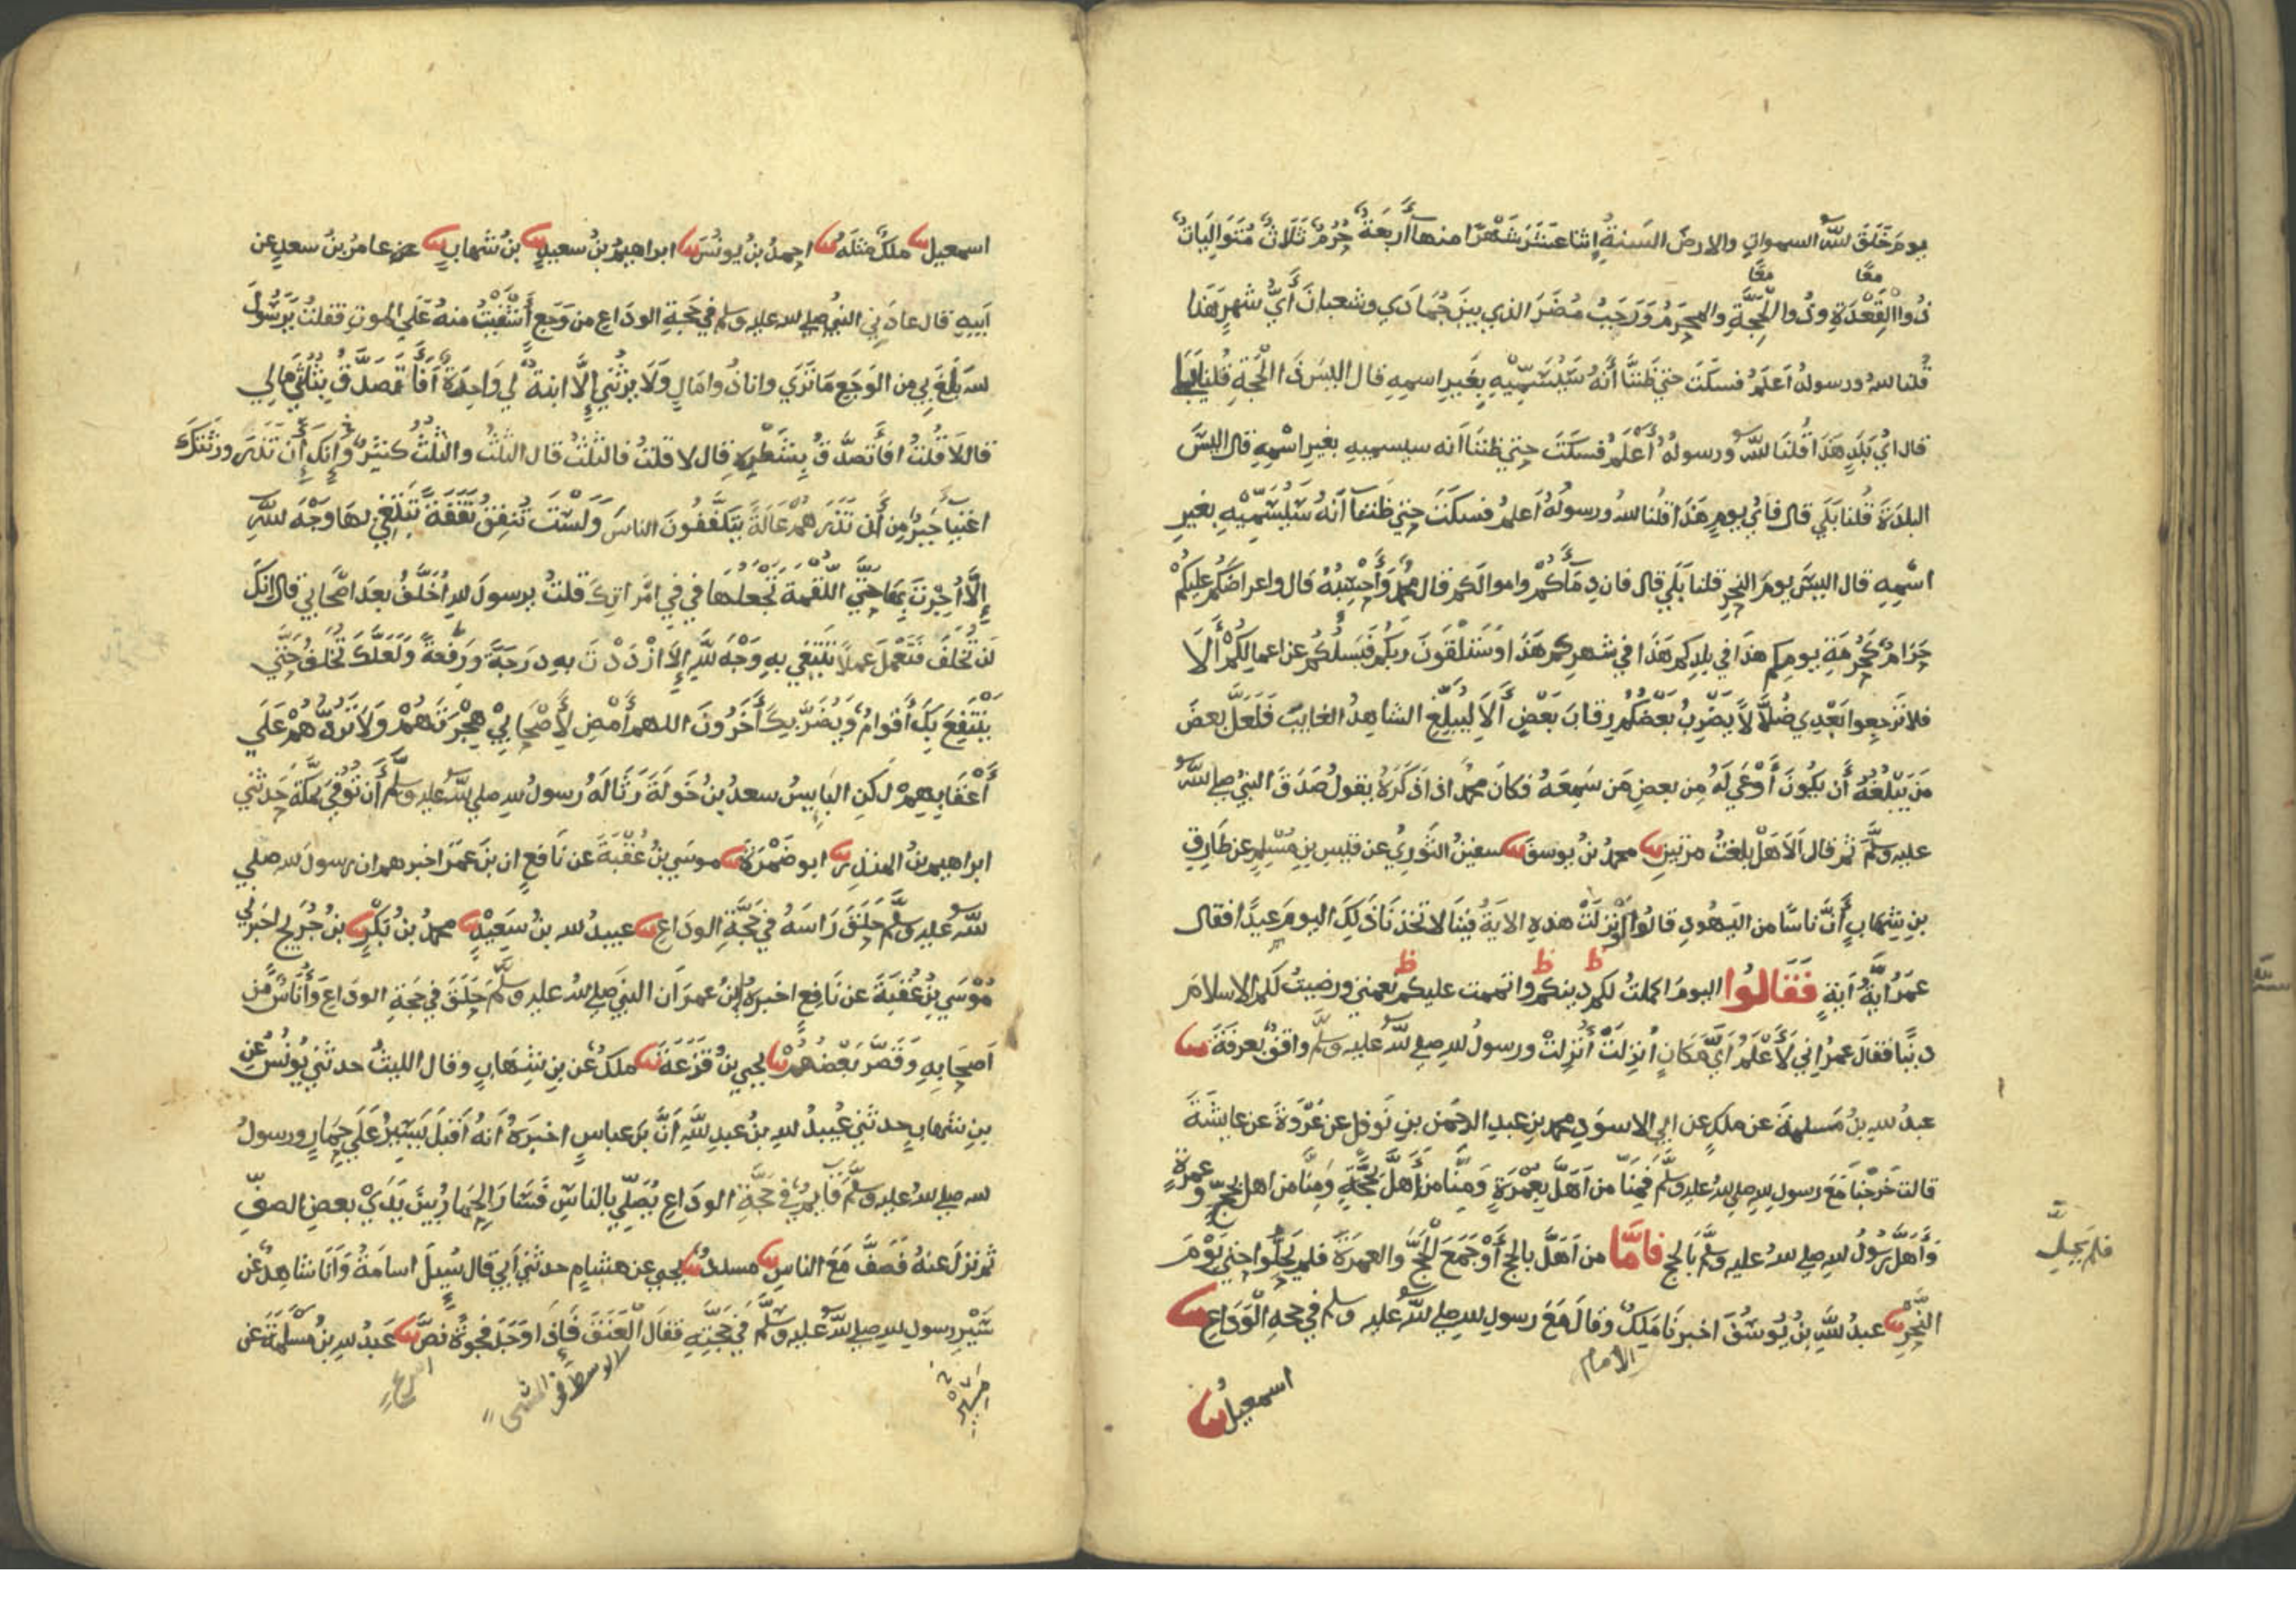 يوم خلق الله السموات والارض السنة اثنا عشر شهرا منها أربعة حرم ثلاث متواليات
معا معا
ذوا القعدة وذوا الحجة والمحرم ورجب مضر الذي بين جمادي وشعبان أي شهر هذا
قلنا الله ورسوله اعلم فسكت حتي ظننا أنه سيسميه بغير اسمه قال اليس ذا الحجة قلنا بلي
قال اي بلد هذا قلنا الله ورسوله أعلم فسكت حتي ظننا انه سيسميه بغير اسمه قال اليس
البلدة قلنا بلي قال فاي يوم هذا قلنا الله ورسوله أعلم فسكت حتي ظننا أنه سيسميه بغير
اسمه قال اليس يوم النحر قلنا بلي قال فان دماكم واموالكم قال محمد وأحسبه قال واعراضكم عليكم
حرام كحرمة يومكم هذا في بلدكم هذا في شهركم هذا وستلقون ربكم فيسلكم عن اعمالكم ألا
فلا ترجعوا بعدي ضلالا يضرب بعضكم رقاب بعض ألا ليبلغ الشاهد الغايب فلعل بعض
من يبلغه أن يكون أوعي له من بعض من سمعه فكان محمد اذا ذكره يقول صدق النبي صلي الله
عليه وسلم ثم قال ألا هل بلغت مرتين ثنا محمد بن يوسف ثنا سفين الثوري عن قيس بن مسلم عن طارق
بن شهاب أن ناسا من اليهود قالوا لو نزلت هذه الاية فينا لاتخذنا ذلك اليوم عيدا فقال
عمر اية اية فقالوا اليوم اكملت لكم دينكم واتممت عليكم نعمتي ورضيت لكم الاسلام
دينا فقال عمر اني لأعلم أي مكان انزلت أنزلت ورسول الله صلي الله عليه وسلم واقف بعرفة ثنا
عبد الله بن مسلمة عن ملك عن ابي الاسود محمد بن عبد الرحمن بن نوفل عن عروة عن عايشة
قالت خرجنا مع رسول الله صلي الله عليه وسلم فمنا من أهل بعمرة ومنا من أهل بحجة ومنا من اهل بحج وعمرة
وأهل رسول الله صلي الله عليه وسلم بالحج فاما من أهل بالحج أو جمع الحج والعمرة فلم يحلوا حتي يوم
فلم يحل
النحر ثنا عبد الله بن يوسف اخبرنا ملك وقال مع رسول الله صلي الله عليه وسلم في حجة الوداع ثنا
الامام
اسمعيل ثنا
اسمعيل ثنا ملك مثله ثنا احمد بن يونس ثنا ابراهيم بن سعيد ثنا بن شهاب ثنا عن عامر بن سعد عن
ابيه قال عادني النبي صلي الله عليه وسلم في حجة الوداع من وجع أشفيت منه علي الموت فقلت يرسول
الله بلغ بي من الوجع ما تري وانا ذوا مال ولا يرثني إلا ابنة لي واحدة أفأتصدق بثلثي مالي
قال لا قلت افأتصدق بشطره قال لا قلت فالثلث قال الثلث والثلث كثير وإنك أن تذر ورثتك
اغنيا خير من أن تذرهم عالة يتكففون الناس ولست تنفق نفقة تبتغي بها وجه الله
إلا أجرت بها حتي اللقمة تجعلها في في امراتك قلت يرسول الله أخلف بعد اصحابي قال انك
لن تخلف فتعمل عملا تبتغي به وجه الله إلا ازددت به درجة ورفعة ولعلك تخلف حتي
ينتفع بك أقوام ويضر بك أخرون اللهم أمض لأصحابي هجرتهم ولا تردهم علي
أعقابهم لكن البايس سعد بن خولة رثا له رسول الله صلي الله عليه وسلم أن توفي بمكة حدثني
ابراهيم بن المنذر ثنا ابو ضمرة ثنا موسي بن عقبة عن نافع ان بن عمر اخبرهم ان رسول الله صلي
الله عليه وسلم حلق راسه في حجة الوداع ثنا عبيد الله بن سعيد ثنا محمد بن بكر ثنا بن جريج اخبرني
موسي بن عقبة عن نافع اخبره ابن عمر ان النبي صلي الله عليه وسلم حلق في حجة الوداع وأناس من
اصحابه وقصر بعضهم ثنا يحيي بن قزعة ثنا ملك عن بن شهاب وقال الليث حدثني يونس عن
بن شهاب حدثني عبيد الله بن عبد الله أن بن عباس اخبره أنه أقبل يسير علي حمار ورسول
الله صلي الله عليه وسلم قايم في حجة الوداع يصلي بالناس فسار الحمار بين يدي بعض الصف
ثم نزل عنه فصف مع الناس ثنا مسدد ثنا يحيي عن هشام حدثني أبي قال سيل اسامة وأنا شاهد عن
سير رسول الله صلي الله عليه وسلم في حجته فقال العنق فاذا وجد فجوة نص ثنا عبد الله بن مسلمة عن
الوسط في المشي
اسرع